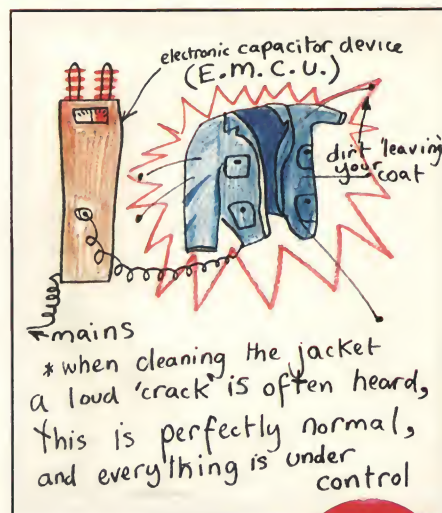 electronic capacitor device
(E.M.C.U.)
dirt 'leaving'
your
coat
mains
* when cleaning the jacket
a loud 'crack' is often heard,
this is perfectly normal,
and everything is under
control